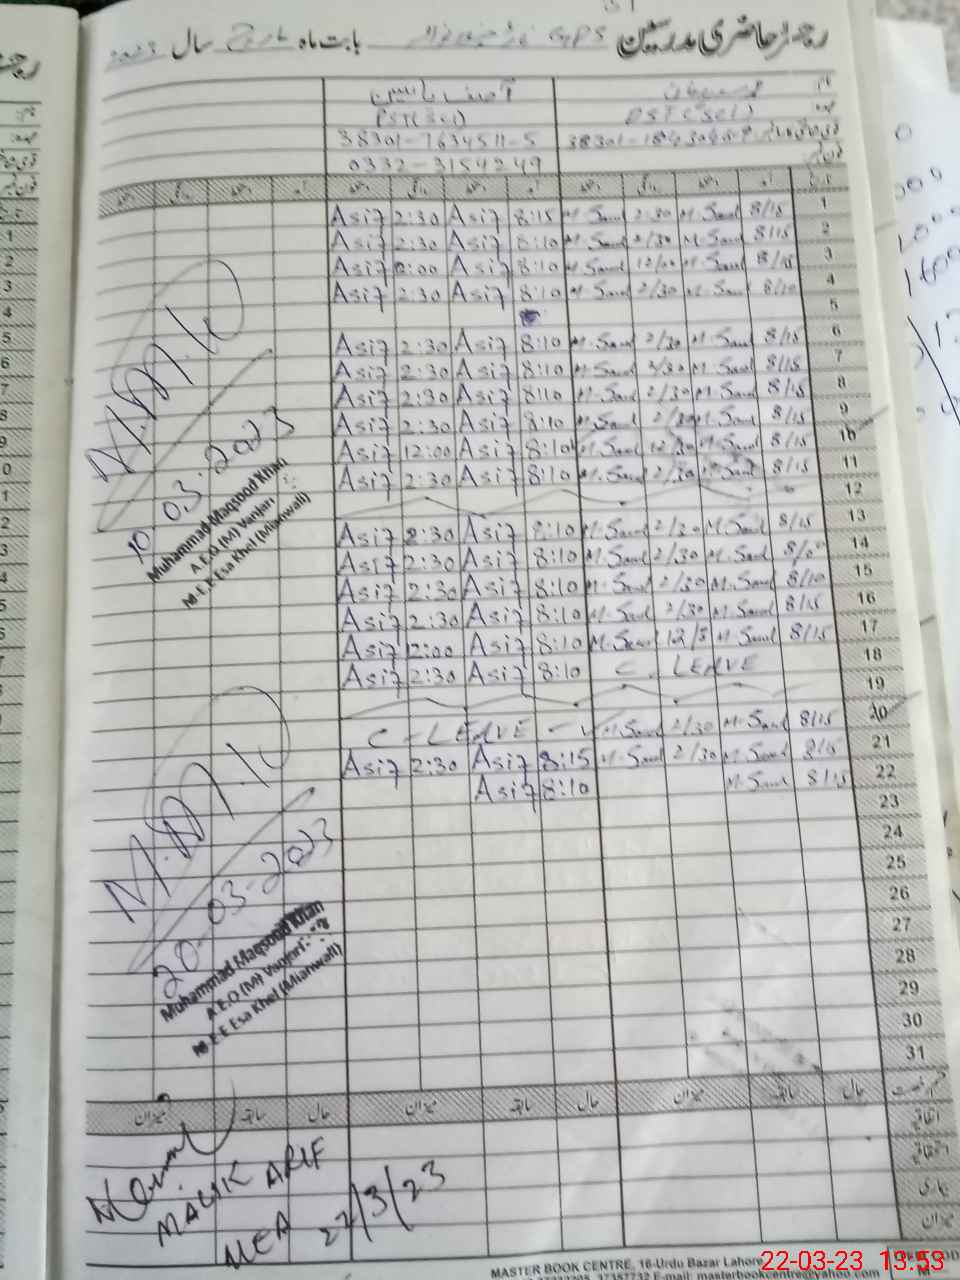 رجسٹر حاضری مدرسین GPS بابت ماہ مارچ سال 2023
آصف یاسین
PST(Sci) PST(Sci)
38301-7634511-5
0332-3154249
Asif 2:30 Asif 8:15 M.Saad 2:30 M.Saad 8/15 1
Asif 2:30 Asif 8:10 M.Saad 2/30 M.Saad 8/15 2
Asif 8:10 M.Saad M.Saad 8/15 3
Asif 2:30 Asif 8:10 M.Saad 2/30 M.Saad 8/10 4
5
Asif 2:30 Asif 8:10 M.Saad 2/30 M.Saad 8/15 6
Asif 2:30 Asif 8:10 M.Saad 2/30 M.Saad 8/15 7
Asif 2:30 Asif 8:10 M.Saad 2/30 M.Saad 8/15 8
Asif 2:30 Asif 8:10 M.Saad M.Saad 8/15 9
Asif 12:00 Asif 8:10 M.Saad 12/30 M.Saad 8/15 10
Asif 2:30 Asif 8:10 M.Saad 2/30 M.Saad 8/15 11
12
Asif 2:30 Asif 8:10 M.Saad 2/30 M.Saad 8/15 13
Asif 2:30 Asif 8:10 M.Saad 2/30 M.Saad 14
Asif 2:30 Asif 8:10 M.Saad 2/30 M.Saad 8/10 15
Asif 2:30 Asif 8:10 M.Saad 2/30 M.Saad 8/15 16
Asif 2:00 Asif 8:10 M.Saad M.Saad 8/15 17
Asif 2:30 Asif 8:10 C. LEAVE 18
19
C-LEAVE M.Saad 2/30 M.Saad 8/15 20
Asif 2:30 Asif 8:15 M.Saad 2/30 M.Saad 8/15 21
Asif 8:10 M.Saad 8/15 22
23
24
25
26
27
28
29
30
31
10.03.2023
Muhammad Maqsood Khan
A.E.O (M) Vanjari
M-E-E Esa Khel (Mianwali)
20-03-2023
Muhammad Maqsood Khan
A.E.O (M) Vanjari
M-E-E Esa Khel (Mianwali)
میزان سابقہ حال میزان سابقہ حال میزان سابقہ حال
اتفاقیہ
استحقاقیہ
بیماری
میزان
MALIK ARIF
MEA 22/3/23
MASTER BOOK CENTRE, 16-Urdu Bazar Lahore
37357732 E-mail: masterbookcentre@yahoo.com
22-03-23 13:53